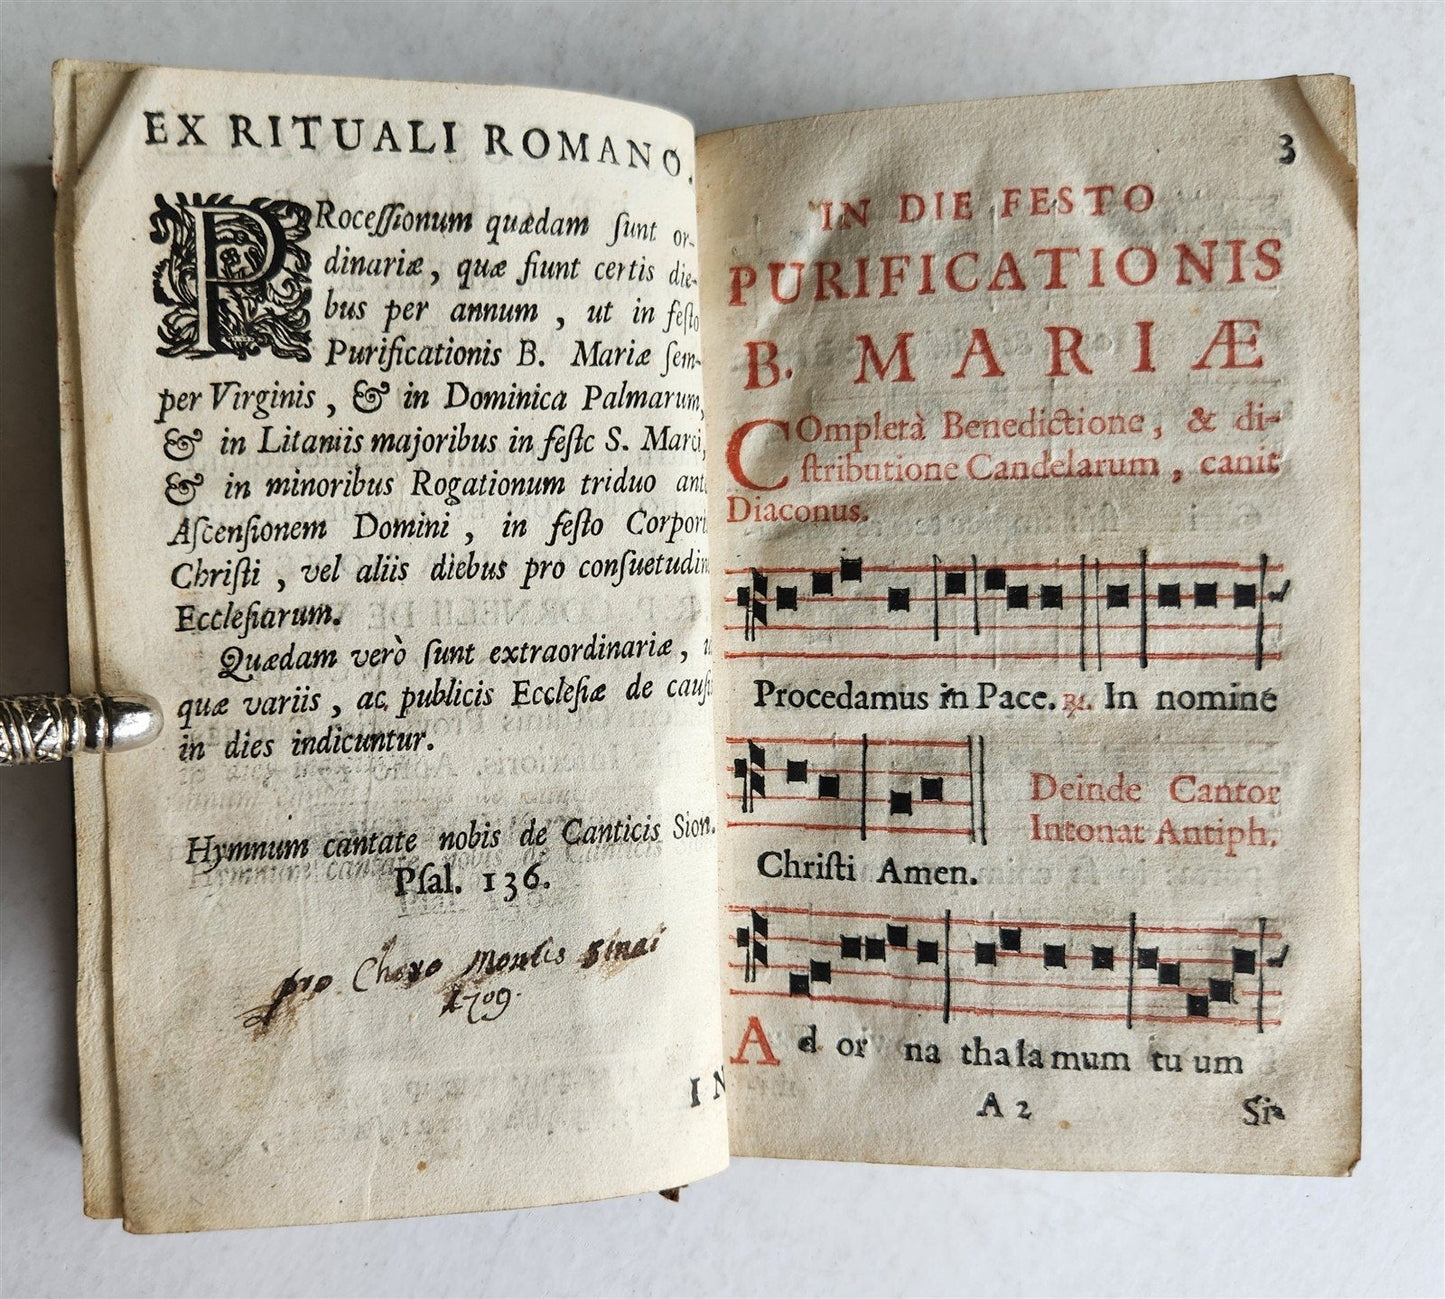 EX RITUALI ROMANO.
PRoceſſionum quædam ſunt or-
dinariæ, quæ fiunt certis die-
bus per annum, ut in feſto
Purificationis B. Mariæ ſem-
per Virginis, & in Dominica Palmarum,
& in Litaniis majoribus in feſtc S. Marci,
& in minoribus Rogationum triduo ant
Aſcenſionem Domini, in feſto Corpori
Chriſti, vel aliis diebus pro conſuetudin
Eccleſiarum.
Quædam verò ſunt extraordinariæ, u
quæ variis, ac publicis Eccleſiæ de cauſi
in dies indicuntur.
Hymnum cantate nobis de Canticis Sion.
Pſal. 136.
pro Choro Montis Sinai
1709.
IN
3
IN DIE FESTO
PURIFICATIONIS
B. MARIÆ
COmpletà Benedictione, & di-
ſtributione Candelarum, canit
Diaconus.
Procedamus in Pace. ℟. In nomine
Deinde Cantor
Intonat Antiph.
Chriſti Amen.
Ad or na tha la mum tu um
A 2 Si-